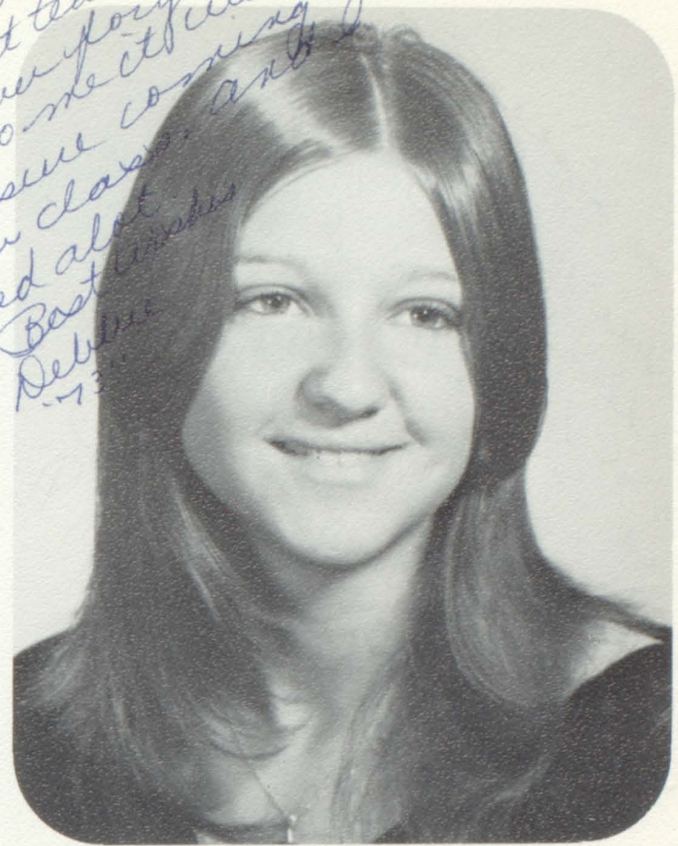 t te
ver forg
o me it wa
sure coming
r class. and I
ed alot
Best Wishes
Debbie
"73"